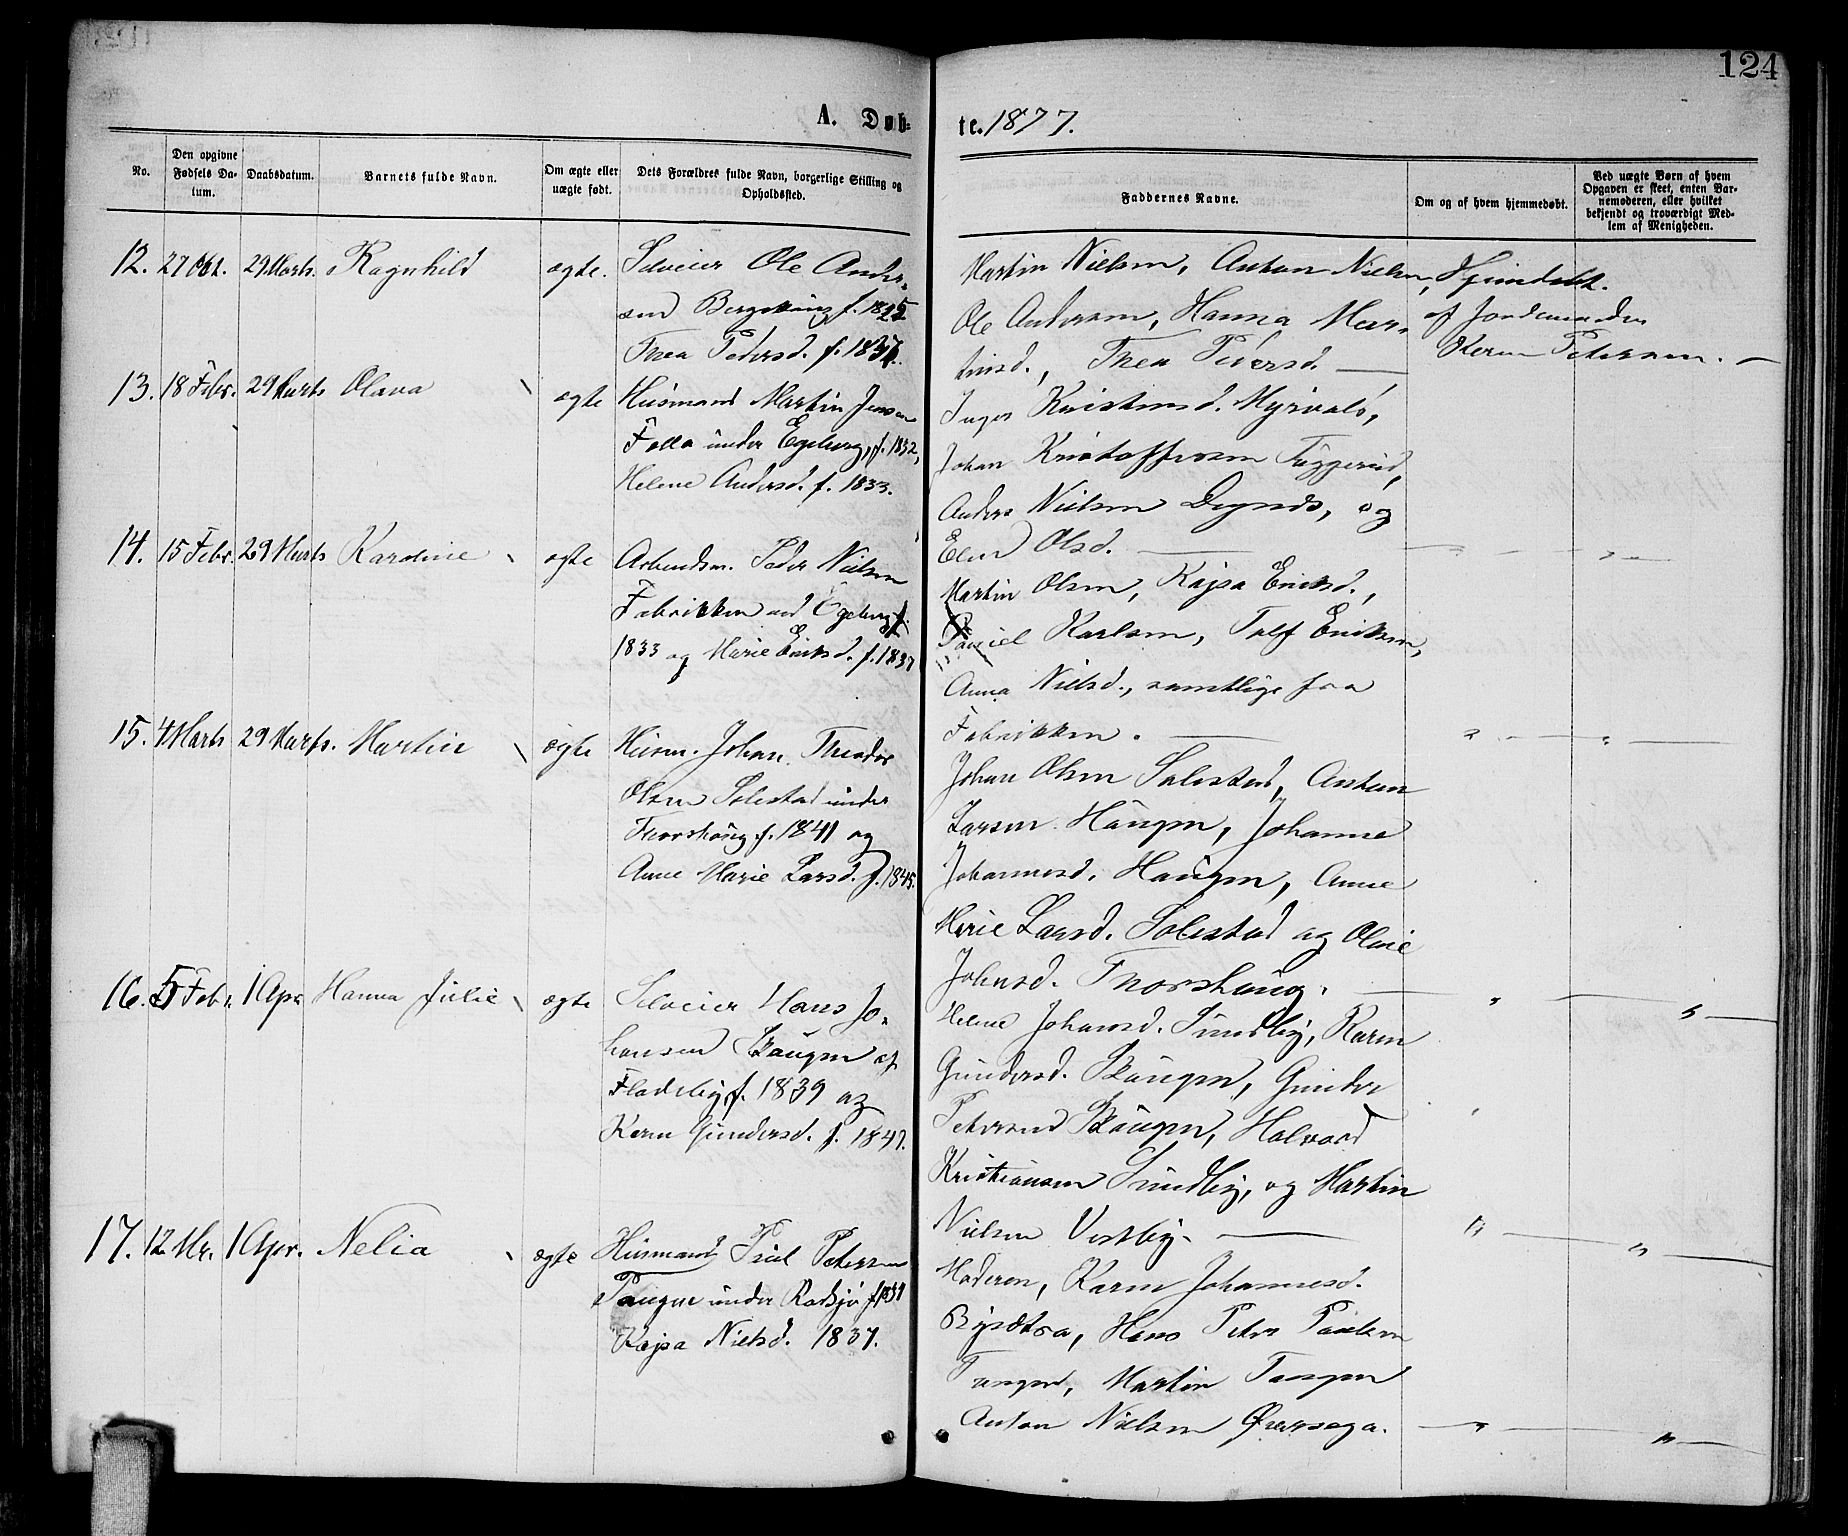 124
A. Døb-
te. 1877.
No.
Den opgivne
Fødsels Da-
tum.
Daabsdatum.
Barnets fulde Navn.
Om ægte eller
uægte født.
Dets Forældres fulde Navn, borgerlige Stilling og
Opholdssted.
Faddernes Navne.
Om og af hvem hjemmedøbt.
Ved uægte Børn af hvem
Opgaven er skeet, enten Bar-
nemoderen, eller hvilket
bekjendt og troværdigt Med-
lem af Menigheden.
12. 27 Okt. 29 Marts. Ragnhild ægte.
Selveier Ole Ander-
sen f. 1825
Thea Pedersd. f. 1837.
Martin Nielsen, Anton Nielsen,
Ole Andersen, Hanna Mar-
tinsd., Thea Pedersd.
Hjemdøbt.
af Jordemoder
Karen Petersen.
13. 18 Febr. 29 Marts Olava ægte
Husmand Martin Jensen
Falla under Egeberg, f. 1832,
Helene Andersd. f. 1833.
Inger Kristensd. Myrvold,
Johan Kristoffersen Tuggerud,
Anders Nielsen Døgnds, og
Elen Olsd.
14. 15 Febr. 29 Marts Karoline ægte
Arbeidsm. Peder Nielsen
Fabrikken ved Egeberg f.
1833 og Marie Eriksd. f. 1837
Martin Olsen, Kajsa Eriksd.,
Daniel Karlsen, Tolf Eriksen,
Anna Nielsd., samtlige fra
Fabrikken.
15. 4 Marts 29 Marts. Martin ægte
Husm. Johan Theodor
Olsen Solestad under
Thorshaug f. 1841 og
Anne Marie Larsd. f. 1845.
Johan Olsen Solestad, Anton
Larsen Haugen, Johanne
Johannesd. Haugen, Anne
Marie Larsd. Solestad og Oline
Johnsd. Thorshaug.
16. 5 Febr. 1 Apr. Hanna Julie ægte
Selveier Hans Jo-
hansen Skaugen af
Fladeby, f. 1839 og
Karen Gundersd. f. 1847.
Helene Johansd. Sundby, Karen
Gundersd. Skaugen, Gunder
Petersen Skaugen, Halvord
Kristiansen Sundby, og Martin
Nielsen Vestby.
17. 12 Mr. 1 Apr. Nelia ægte
Husmand Paul Petersen
Tangen under Ratsjø f. 1831
Kajsa Nielsd. 1837.
Moderen, Karen Johannesd.
Bysætra, Hans Peter Paulsen
Tangen, Martin Tangen
Anton Nielsen Øversaga.